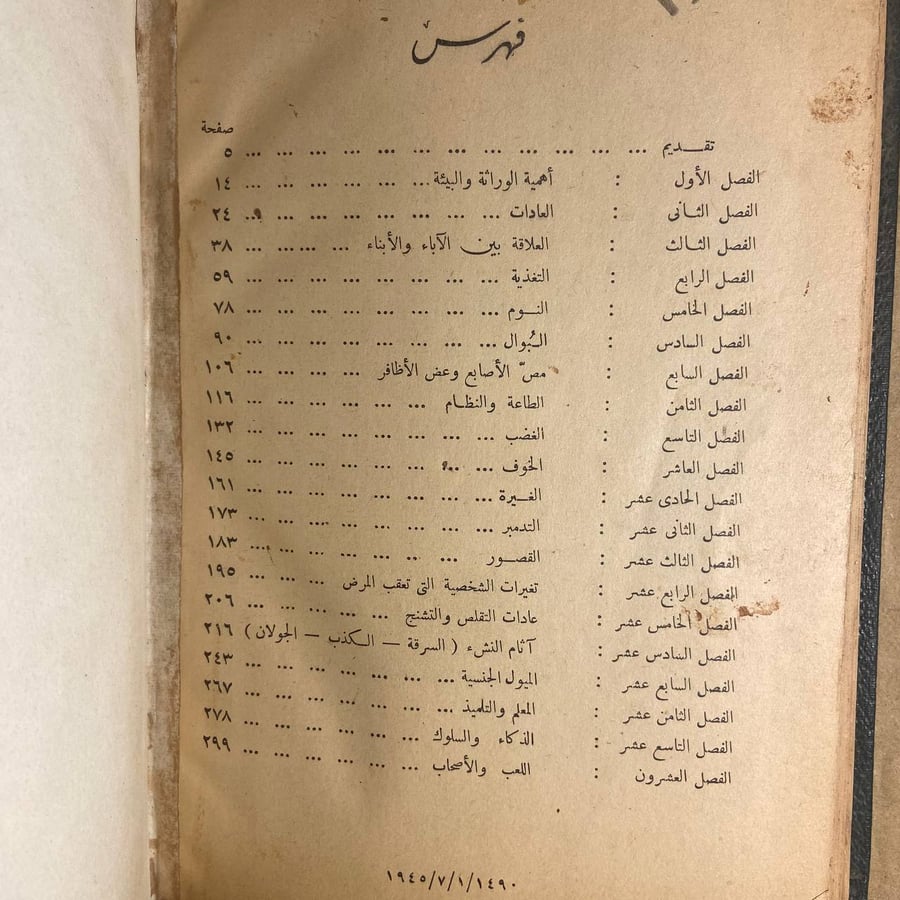 فهرس
صفحة
تقـــديم ... ... ... ... ... ... ... ... ... ... ... ... ٥
الفصل الأول : أهمية الوراثة والبيئة ... ... ... ... ... ... ... ١٤
الفصل الثانى : العادات ... ... ... ... ... ... ... ... ٢٤
الفصل الثالث : العلاقة بين الآباء والأبناء ... ... ... ... ... ٣٨
الفصل الرابع : التغذية ... ... ... ... ... ... ... ... ٥٩
الفصل الخامس : النــوم ... ... ... ... ... ... ... ... ٧٨
الفصل السادس : البُوال ... ... ... ... ... ... ... ... ٩٠
الفصل السابع : مصّ الأصابع وعض الأظافر ... ... ... ... ١٠٦
الفصل الثامن : الطاعة والنظـام ... ... ... ... ... ... ١١٦
الفصل التاسع : الغضب ... ... ... ... ... ... ... ... ١٣٢
الفصل العاشر : الخوف ... ... ... ... ... ... ... ... ١٤٥
الفصل الحادى عشر : الغــيرة ... ... ... ... ... ... ... ... ١٦١
الفصل الثانى عشر : التدمير ... ... ... ... ... ... ... ... ١٧٣
الفصل الثالث عشر : القصــور ... ... ... ... ... ... ... ١٨٣
الفصل الرابع عشر : تغيرات الشخصية التى تعقب المرض ... ... ... ١٩٥
الفصل الخامس عشر : عادات التقلص والتشنج ... ... ... ... ... ٢٠٦
الفصل السادس عشر : آثام النشء ( السرقة — الكذب — الجولان ) ٢١٦
الفصل السابع عشر : الميول الجنسية ... ... ... ... ... ... ... ٢٤٣
الفصل الثامن عشر : المعلم والتلميذ ... ... ... ... ... ... ... ٢٦٧
الفصل التاسع عشر : الذكاء والسلوك ... ... ... ... ... ... ٢٧٨
الفصل العشرون : اللعب والأصحاب ... ... ... ... ... ... ٢٩٩
١٩٤٥/٧/١/١٤٩٠